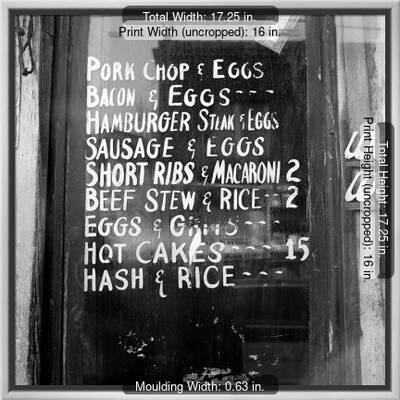 Total Width: 17.25 in.
Print Width (uncropped): 16 in.
PORK CHOP & EGGS
BACON & EGGS---
HAMBURGER STEAK & EGGS
SAUSAGE & EGGS
SHORT RIBS & MACARONI 2
BEEF STEW & RICE-- 2
EGGS &
HOT CAKES --- 15
HASH & RICE---
Print Height (uncropped): 16 in.
Total Height: 17.25 in.
Moulding Width: 0.63 in.